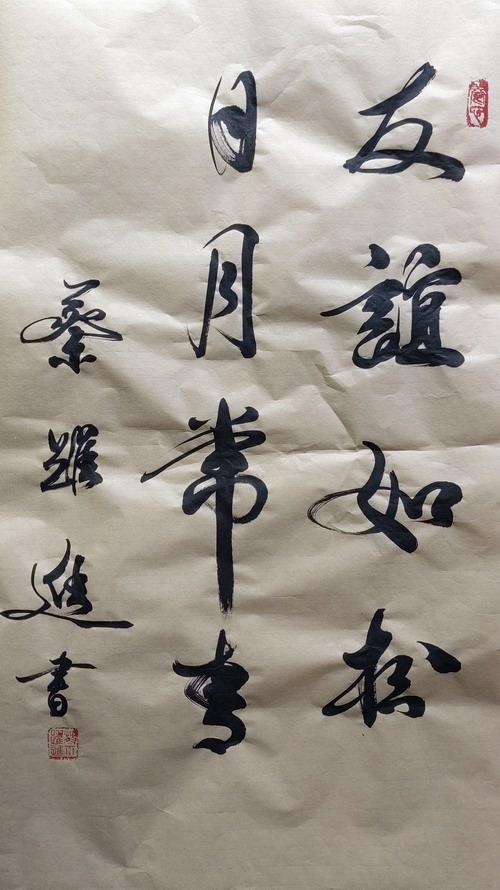 友誼如松
日月常青
蔡躍進書